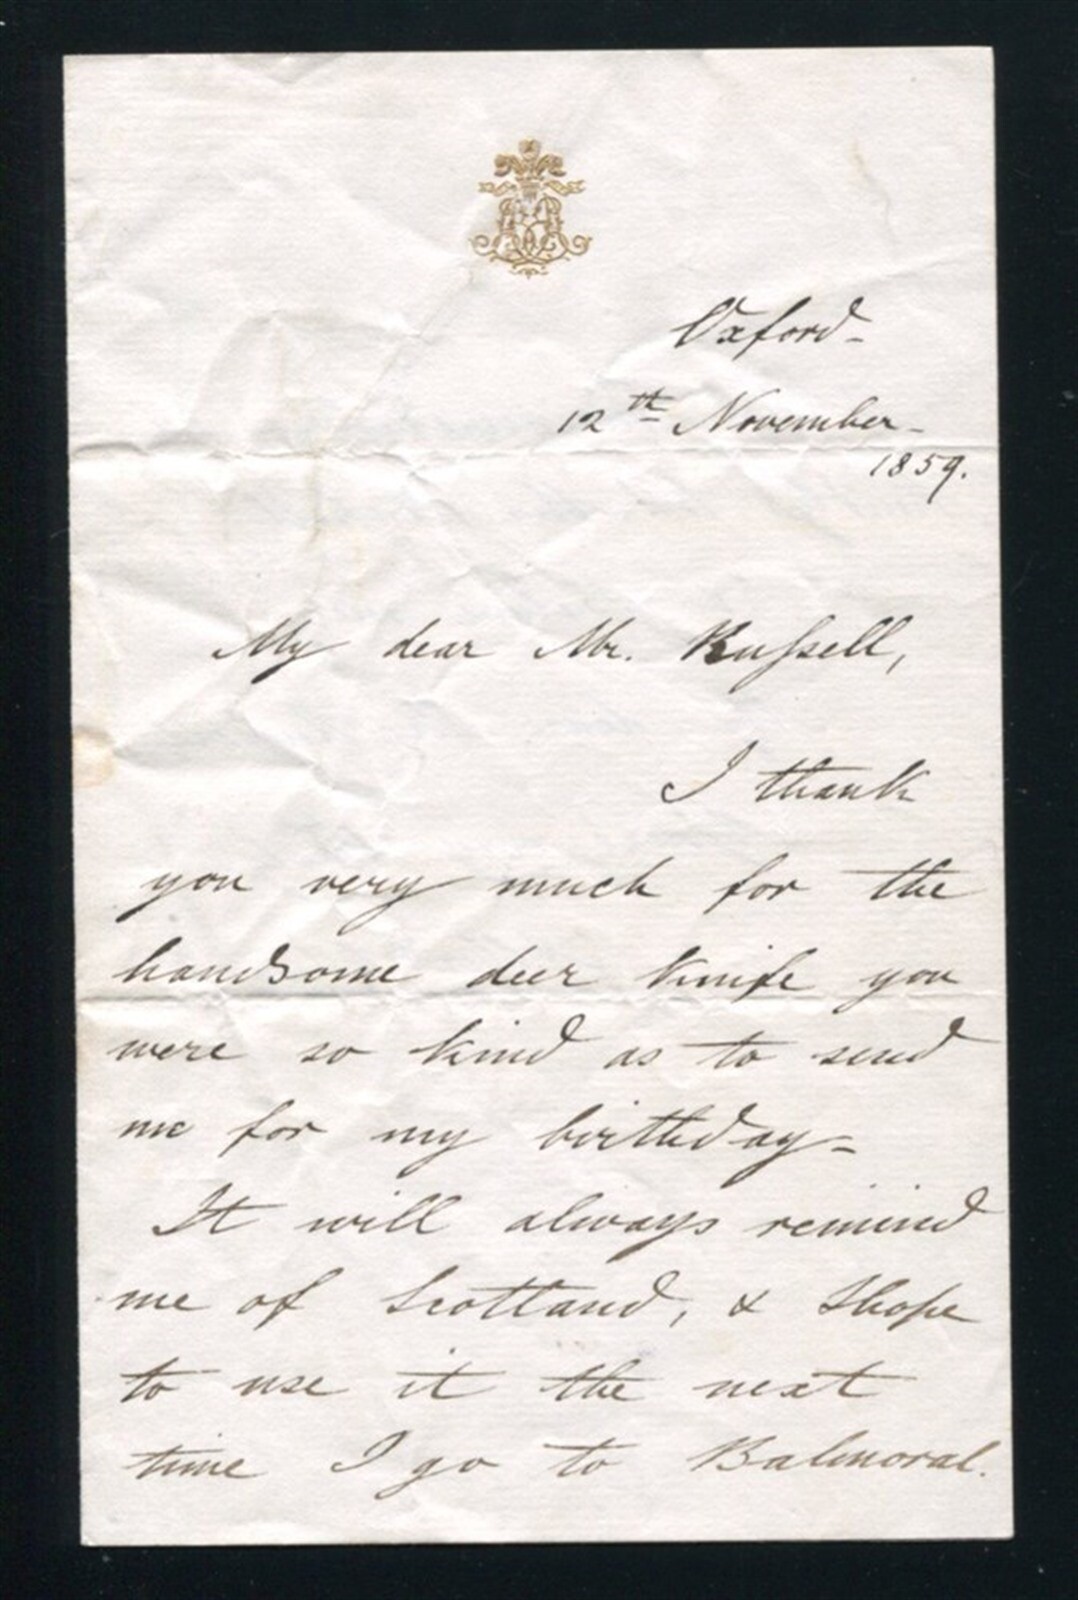 Oxford -
12th November -
1859.
My dear Mr. Russell,
I thank
you very much for the
handsome deer knife you
were so kind as to send
me for my birthday -
It will always remind
me of Scotland, & I hope
to use it the next
time I go to Balmoral.